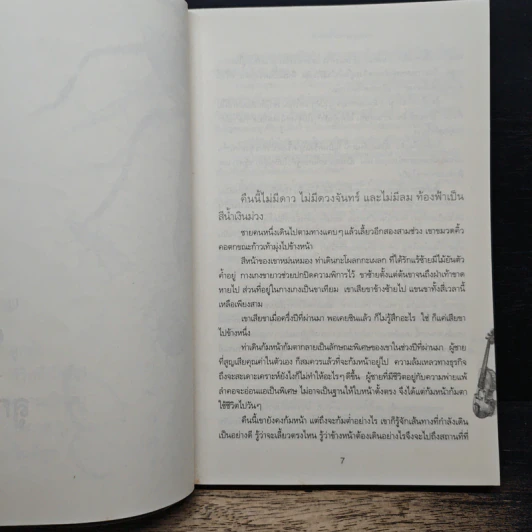 คืนนี้ไม่มีดาว ไม่มีดวงจันทร์ และไม่มีลม ท้องฟ้าเป็น
สีน้ำเงินม่วง
ชายคนหนึ่งเดินไปตามทางแคบๆ แล้วเลี้ยวอีกสองสามช่วง เขาขมวดคิ้ว
คอตกขณะก้าวเท้ามุ่งไปข้างหน้า
สีหน้าของเขาหม่นหมอง ท่าเดินกะโผลกกะเผลก ที่ใต้รักแร้ซ้ายมีไม้ยันตัว
ค้ำอยู่ กางเกงขายาวช่วยปกปิดความพิการไว้ ขาซ้ายตั้งแต่ต้นขาจนถึงฝ่าเท้าขาด
หายไป ส่วนที่อยู่ในกางเกงเป็นขาเทียม เขาเสียขาข้างซ้ายไป แขนขาทั้งสี่เวลานี้
เหลือเพียงสาม
เขาเสียขาเมื่อครึ่งปีที่ผ่านมา พอเคยชินแล้ว ก็ไม่รู้สึกอะไร ใช่ ก็แค่เสียขา
ไปข้างหนึ่ง
ท่าเดินก้มหน้าก้มตากลายเป็นลักษณะพิเศษของเขาในช่วงปีที่ผ่านมา ผู้ชาย
ที่สูญเสียคุณค่าในตัวเอง ก็สมควรแล้วที่จะก้มหน้าอยู่ไป ความล้มเหลวทางธุรกิจ
ถึงจะสะเดาะเคราะห์ยังไงก็ไม่ทำให้อะไรๆ ดีขึ้น ผู้ชายที่มีชีวิตอยู่กับความพ่ายแพ้
ลำคอจะอ่อนแอเป็นพิเศษ ไม่อาจเป็นฐานให้ใบหน้าตั้งตรง จึงได้แต่ก้มหน้าก้มตา
ใช้ชีวิตไปวันๆ
คืนนี้เขายังคงก้มหน้า แต่ถึงจะก้มต่ำอย่างไร เขาก็รู้จักเส้นทางที่กำลังเดิน
เป็นอย่างดี รู้ว่าจะเลี้ยวตรงไหน รู้ว่าข้างหน้าต้องเดินอย่างไรจึงจะไปถึงสถานที่ที่
7